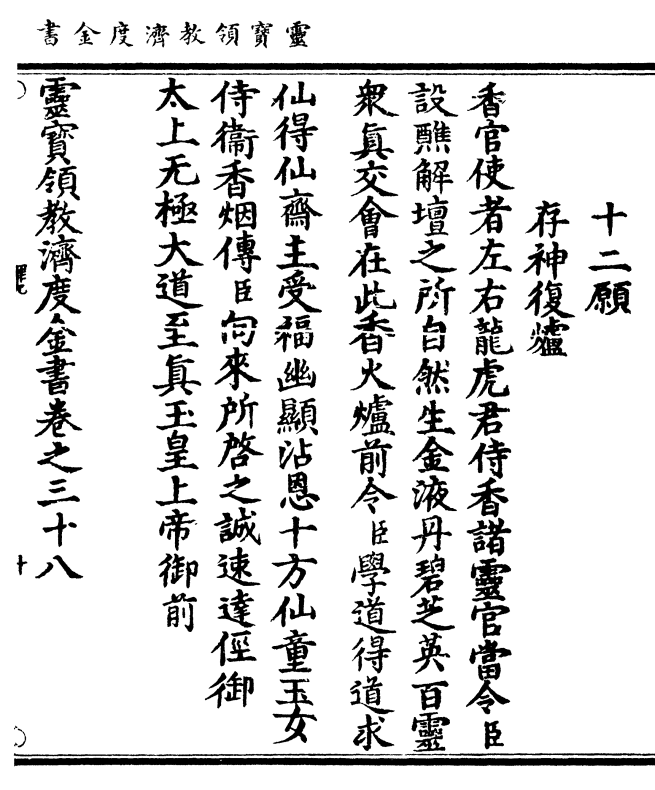 靈寶領教濟度金書
十二願
存神復爐
香官使者左右龍虎君侍香諸靈官當令臣
設醮解壇之所自然生金液丹碧芝英百靈
衆眞交會在此香火爐前令臣學道得道求
仙得仙齋主受福幽顯沾恩十方仙童玉女
侍衞香烟傳臣向來所啓之誠速達徑御
太上无極大道至眞玉皇上帝御前
靈寶領教濟度金書卷之三十八
十